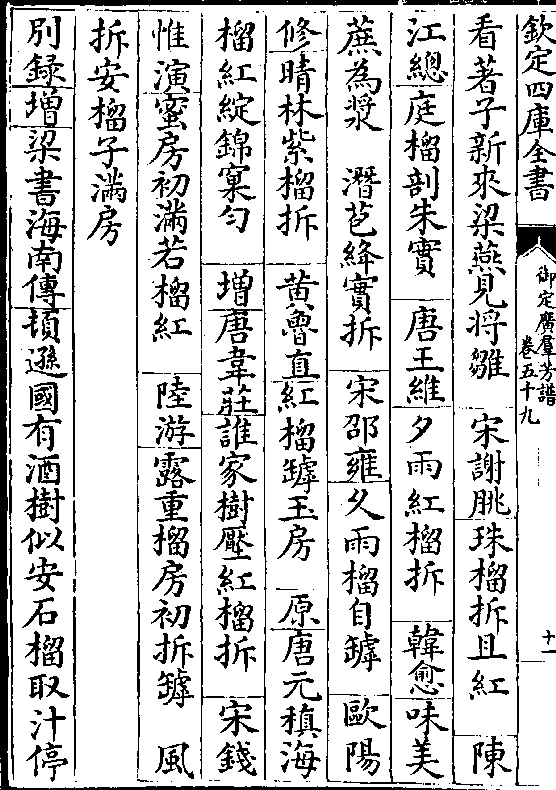 欽定四庫全書
御定廣羣芳譜
卷五十九
十一
看著子新來梁燕見将雛 宋謝朓珠榴拆且紅 陳
江總庭榴剖朱實 唐王維夕雨紅榴拆 韓愈味美
蔗為漿 潛苞絳實拆 宋邵雍久雨榴自罅 歐陽
修晴林紫榴拆 黄魯直紅榴罅玉房 原唐元稹海
榴紅綻錦窠勻 增唐韋莊誰家樹壓紅榴拆 宋錢
惟演蜜房初滿若榴紅 陸游露重榴房初拆罅 風
拆安榴子滿房
别録增梁書海南傳頓遜國有酒樹似安石榴取汁停